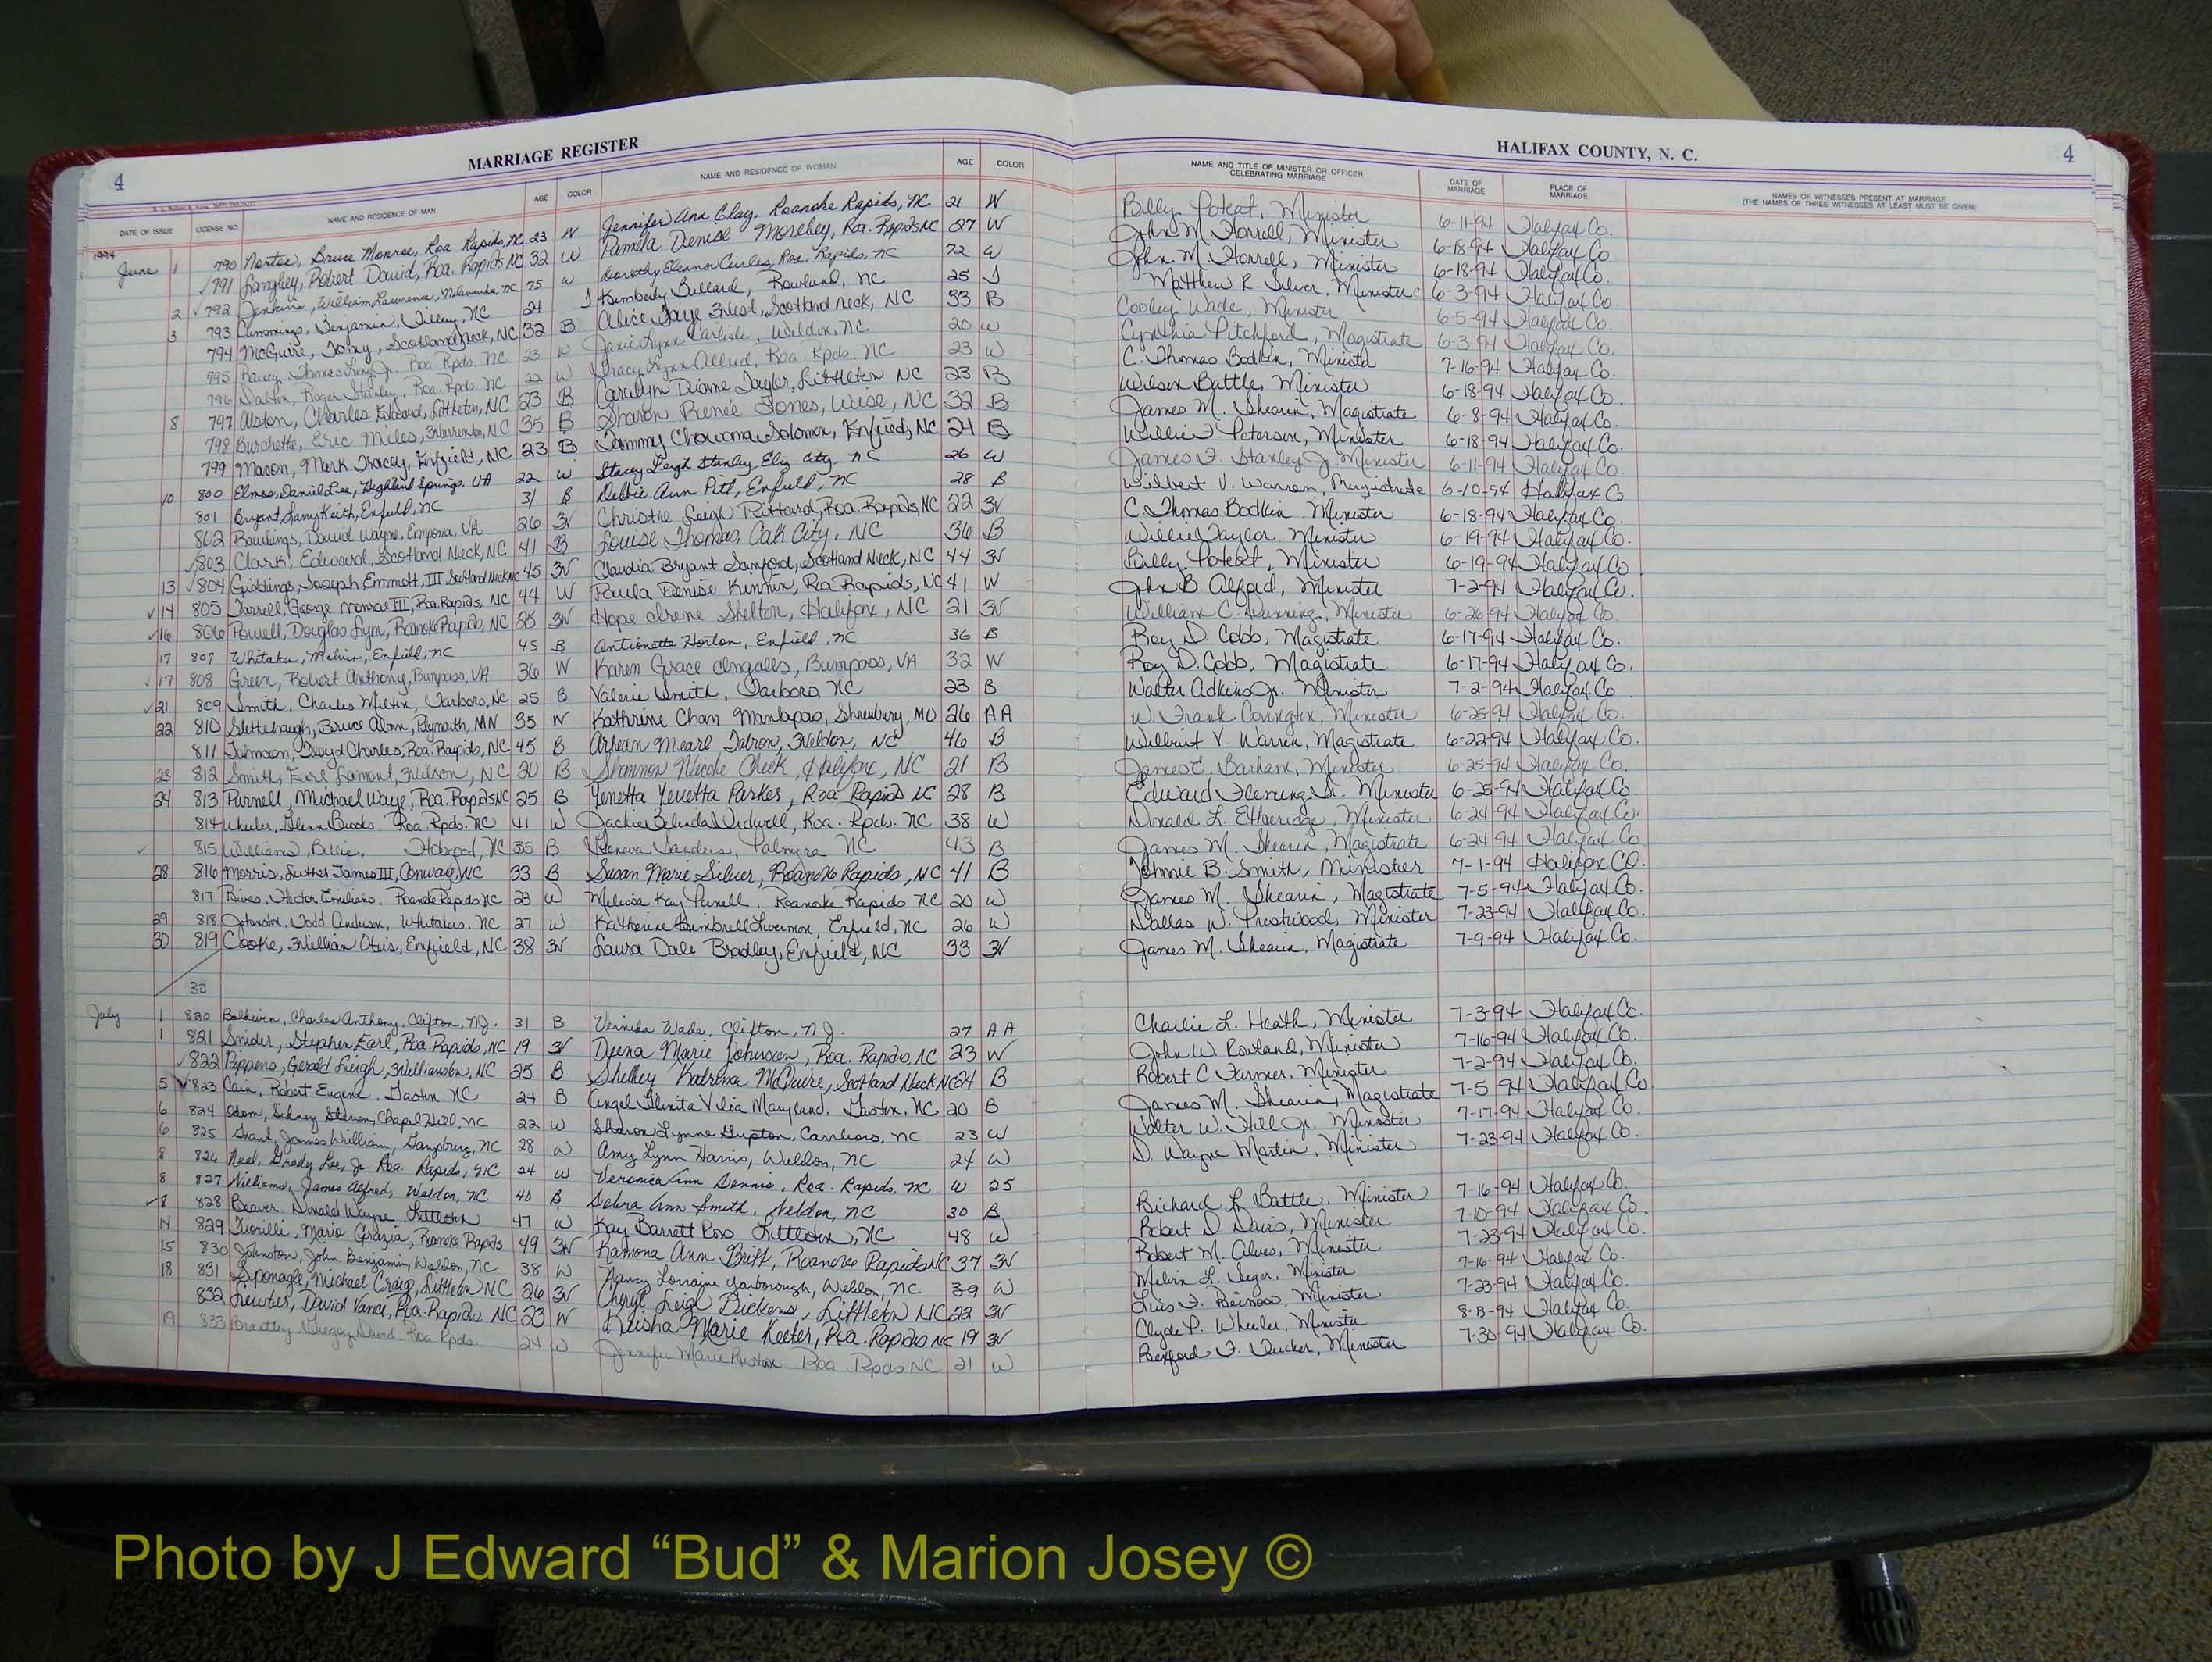 MARRIAGE REGISTER
HALIFAX COUNTY, N. C.
4
4
DATE OF ISSUE LICENSE NO. NAME AND RESIDENCE OF MAN AGE COLOR NAME AND RESIDENCE OF WOMAN AGE COLOR NAME AND TITLE OF MINISTER OR OFFICER CELEBRATING MARRIAGE DATE OF MARRIAGE PLACE OF MARRIAGE NAMES OF WITNESSES PRESENT AT MARRIAGE (THE NAMES OF THREE WITNESSES AT LEAST MUST BE GIVEN)
1994
June 1 790 Bruce Monroe, Roa Rapids, NC 23 W Jennifer Ann Clay, Roanoke Rapids, NC 21 W Billy Poteat, Minister 6-11-94 Halifax Co.
791 Langley, Robert David, Roa. Rapids NC 32 W Pamela Denise Moseley, Roa. Rapids NC 27 W John M. Horrell, Minister 6-18-94 Halifax Co.
2 792 Jenkins, William Lawrence, NC 75 W Dorothy Eleanor Curles, Roa. Rapids, NC 72 W John M. Horrell, Minister 6-18-94 Halifax Co.
3 793 Cummings, Benjamin, NC 24 I Kimberly Bullard, Rowland, NC 25 I Matthew R. Silver, Minister 6-3-94 Halifax Co.
794 McGuire, Tony, Scotland Neck, NC 32 B Alice Faye West, Scotland Neck, NC 33 B Cooley Wade, Minister 6-5-94 Halifax Co.
795 Thomas King Jr. Roa. Rpds. NC 23 W Janie Lynn Carlisle, Weldon, NC 20 W Cynthia Pitchford, Magistrate 6-3-94 Halifax Co.
796 Dalton, Roger Stanley, Roa. Rpds. NC 22 W Tracy Lynn Allred, Roa. Rpds. NC 23 W C. Thomas Bodkin, Minister 7-16-94 Halifax Co.
8 797 Alston, Charles Edward, Littleton, NC 23 B Caralyn Dionne Taylor, Littleton NC 23 B Wilson Battle, Minister 6-18-94 Halifax Co.
798 Burchette, Eric Miles, Warrenton, NC 35 B Sharon Reneé Jones, Wise, NC 32 B James M. Shearin, Magistrate 6-8-94 Halifax Co.
799 Macon, Mark Tracey, Enfield, NC 23 B Tammy Solomon, Enfield, NC 24 B Willie J. Peterson, Minister 6-18-94 Halifax Co.
10 800 Elmes, Daniel Lee, Highland Springs, VA 22 W Stacey Leigh Stanley Eliz. City, NC 26 W James F. Stanley Jr. Minister 6-11-94 Halifax Co.
801 Bryant, Larry Keith, Enfield, NC 31 B Debbie Ann Pitt, Enfield, NC 28 B Wilbert V. Warren, Magistrate 6-10-94 Halifax Co
802 Rawlings, David Wayne, Emporia, VA 26 W Christie Leigh Pittard, Roa. Rapids, NC 22 W C. Thomas Bodkin Minister 6-18-94 Halifax Co.
803 Clark, Edward, Scotland Neck, NC 41 B Louise Thomas, Oak City, NC 36 B Willie Taylor Minister 6-19-94 Halifax Co.
13 804 Giddings, Joseph Emmett, III Scotland Neck NC 45 W Claudia Bryant Sanford, Scotland Neck, NC 44 W Billy Poteat, Minister 6-19-94 Halifax Co
14 805 Farrell, George Monroe III, Roa. Rapids, NC 44 W Paula Denise Kinkin, Roa Rapids, NC 41 W John B. Alford, Minister 7-2-94 Halifax Co.
16 806 Powell, Douglas Lynn, Roanoke Rapids, NC 35 W Hope Irene Shelton, Halifax, NC 21 W William C. Dunning, Minister 6-26-94 Halifax Co.
17 807 Whitaker, Melvin, Enfield, NC 45 B Antionette Horton, Enfield, NC 36 B Roy D. Cobb, Magistrate 6-17-94 Halifax Co.
17 808 Green, Robert Anthony, Bumpass, VA 36 W Karen Grace Ingalls, Bumpass, VA 32 W Roy D. Cobb, Magistrate 6-17-94 Halifax Co.
21 809 Smith, Charles Milton, Tarboro, NC 25 B Valerie Smith, Tarboro, NC 23 B Walter Adkins Jr. Minister 7-2-94 Halifax Co
22 810 Slettehaugh, Bruce Alan, Plymouth, MN 35 W Kathrine Chan Manlapas, Shrewsbury, MO 26 AA W. Frank Covington, Minister 6-25-94 Halifax Co.
811 Johnson, Floyd Charles, Roa. Rapids, NC 45 B Arlean Mearl Tabron, Weldon, NC 46 B Wilbert V. Warren, Magistrate 6-22-94 Halifax Co.
23 812 Smith, Earl Lamont, Wilson, NC 20 B Shannon Nicole Cheek, Halifax, NC 21 B James E. Barham, Minister 6-25-94 Halifax Co.
24 813 Purnell, Michael Waye, Roa. Rapids NC 25 B Yenetta Parker, Roa Rapids NC 28 B Edward Fleming Sr. Minister 6-25-94 Halifax Co.
814 Wheeler, Glenn Brooks Roa. Rpds. NC 41 W Jackie Belinda Vidwell, Roa. Rpds. NC 38 W Donald L. Etheridge, Minister 6-24-94 Halifax Co.
815 Williams, Billie, Hobgood, NC 35 B Geneva Sanders, Palmyra NC 43 B James M. Shearin, Magistrate 6-24-94 Halifax Co
28 816 Morris, Luther James III, Conway, NC 33 B Susan Marie Silver, Roanoke Rapids, NC 41 B Johnnie B. Smith, Minister 7-1-94 Halifax Co.
817 Rives, Victor Emiliano, Roanoke Rapids NC 23 W Melissa Kay Purnell, Roanoke Rapids NC 20 W James M. Shearin, Magistrate 7-5-94 Halifax Co.
29 818 Johnston, Todd Anderson, Whitakers, NC 27 W Katherine Kimbrell Livermon, Enfield, NC 26 W Dallas W. Prestwood, Minister 7-23-94 Halifax Co.
30 819 Cooke, William Otis, Enfield, NC 38 W Laura Dale Bradley, Enfield, NC 33 W James M. Shearin, Magistrate 7-9-94 Halifax Co.
30
July 1 820 Baldwin, Charles Anthony, Clifton, NJ. 31 B Vernida Wade, Clifton, NJ. 27 AA Charlie L. Heath, Minister 7-3-94 Halifax Co.
1 821 Snider, Stephen Earl, Roa. Rapids, NC 19 W Deena Marie Johnson, Roa. Rapids, NC 23 W John W. Rowland, Minister 7-16-94 Halifax Co.
822 Pippens, Gerald Leigh, Williamston, NC 25 B Shelley Katrina McGuire, Scotland Neck NC 24 B Robert C. Farmer, Minister 7-2-94 Halifax Co.
5 823 Cain, Robert Eugene, Gaston NC 24 B Angel Maryland, Gaston, NC 20 B James M. Shearin, Magistrate 7-5-94 Halifax Co
6 824 Odom, Sidney Steven, Chapel Hill, NC 22 W Sharon Lynne Gupton, Carrboro, NC 23 W Walter W. Hill Jr. Minister 7-17-94 Halifax Co.
6 825 Grant, James William, Garysburg, NC 28 W Amy Lynn Harris, Weldon, NC 24 W D. Wayne Martin, Minister 7-23-94 Halifax Co.
8 826 Neal, Grady Lee, Jr. Roa. Rapids, NC 24 W Veronica Ann Dennis, Roa. Rapids, NC W 25
8 827 Williams, James Alfred, Weldon, NC 40 B Debra Ann Smith, Weldon, NC 30 B Richard L. Battle, Minister 7-16-94 Halifax Co.
8 828 Beaver, Donald Wayne Littleton 47 W Kay Barrett Ross Littleton, NC 48 W Robert D. Davis, Minister 7-10-94 Halifax Co.
14 829 Fiorilli, Mario Grazia, Roanoke Rapids 49 W Ramona Ann Britt, Roanoke Rapids NC 37 W Robert M. Alves, Minister 7-23-94 Halifax Co.
15 830 Johnston, John Benjamin, Weldon, NC 38 W Nancy Lorraine Yarborough, Weldon, NC 39 W Melvin L. Seger, Minister 7-16-94 Halifax Co.
18 831 Sponagle, Michael Craig, Littleton NC 26 W Cheryl Leigh Dickens, Littleton NC 22 W Luis F. Minister 7-23-94 Halifax Co.
832 Lewter, David Vance, Roa. Rapids NC 23 W Keisha Marie Keeter, Roa. Rapids NC 19 W Clyde P. Wheeler, Minister 8-13-94 Halifax Co.
19 833 Brantley Gregory David Roa Rpds. 24 W Jennifer Marie Roa Rpds NC 21 W Rexford F. Tucker, Minister 7-30-94 Halifax Co.
Photo by J Edward “Bud” & Marion Josey ©